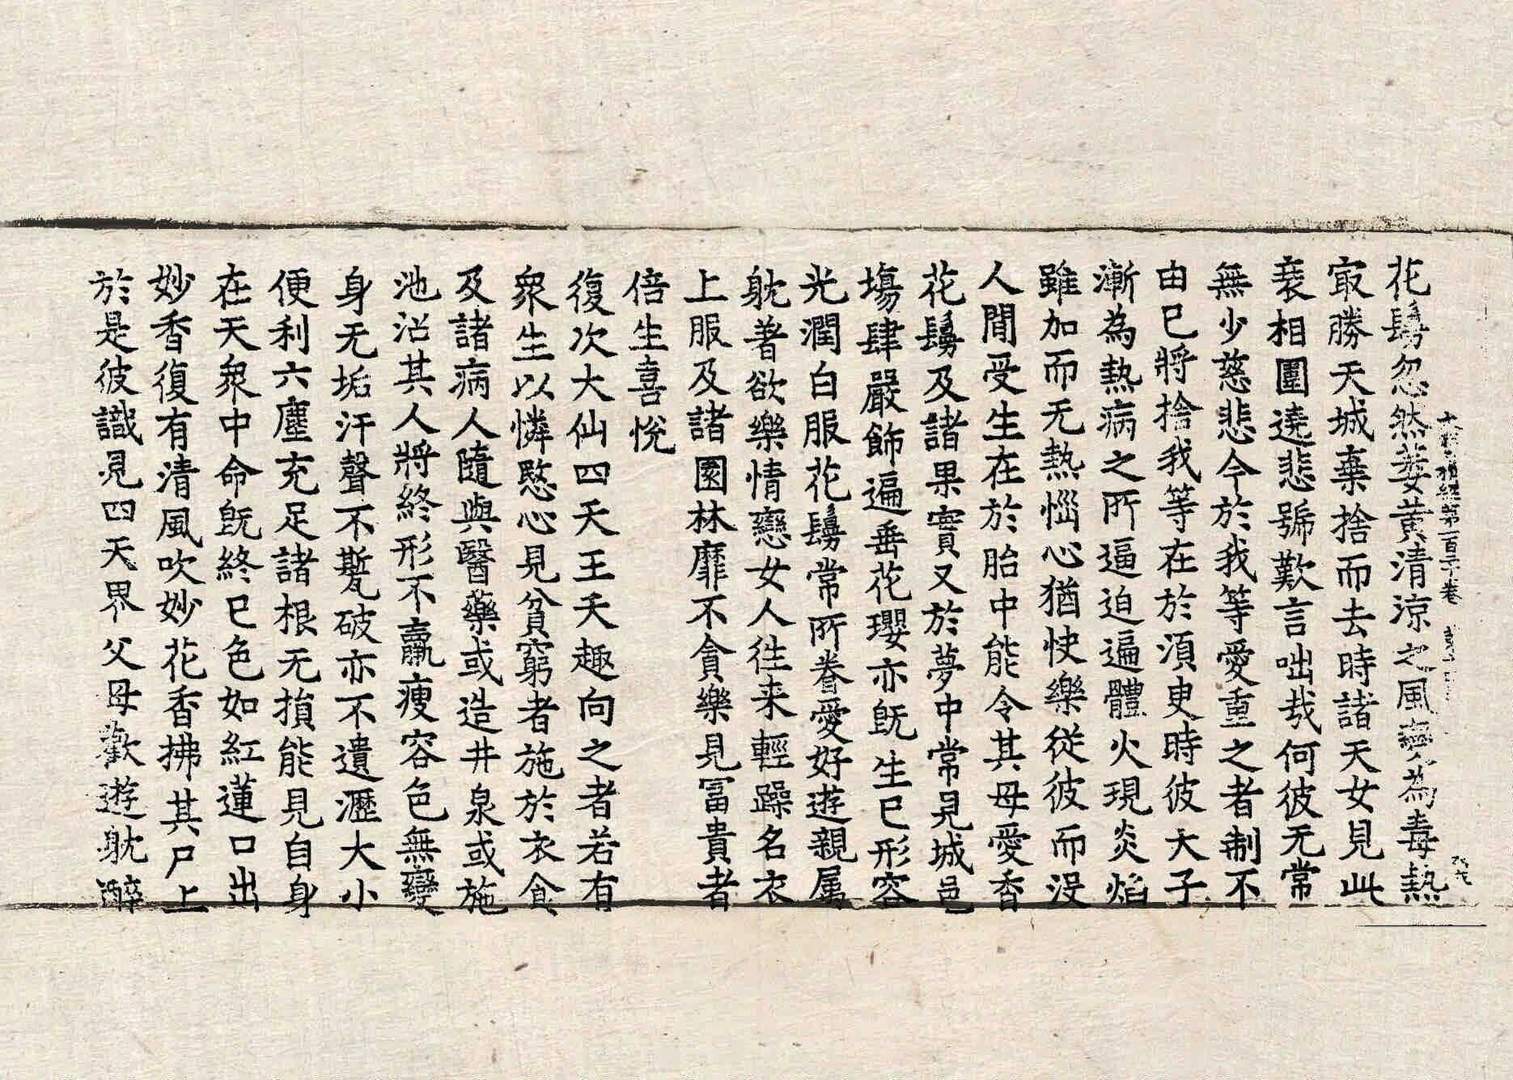 花鬘忽然萎黄清涼之風變為毒熱
㝡勝天城棄捨而去時諸天女見此
衰相圍遶悲號歎言咄㦲何彼无常
無少慈悲今於我等愛重之者制不
由已將捨我等在於湏臾時彼天子
漸為熱病之所逼迫遍體火現炎焰
雖加而无熱惱心猶快樂從彼而没
人間受生在於胎中能令其母愛香
花鬘及諸果實又於夢中常見城邑
塲肆嚴飾遍垂花瓔亦既生已形容
光潤白服花鬘常所眷愛好遊親属
躭著欲樂情戀女人往来輕躁名衣
上服及諸園林靡不貪樂見冨貴者
倍生喜悅
復次大仙四天王天趣向之者若有
衆生以憐愍心見貧窮者施於衣食
及諸病人隨與醫藥或造井泉或施
池沼其人將終形不羸瘦容色無變
身无垢汗聲不嘶破亦不遺瀝大小
便利六塵充足諸根无損能見自身
在天衆中命既終已色如紅蓮口出
妙香復有清風吹妙花香拂其尸上
於是彼識見四天界父母歡遊躭醉